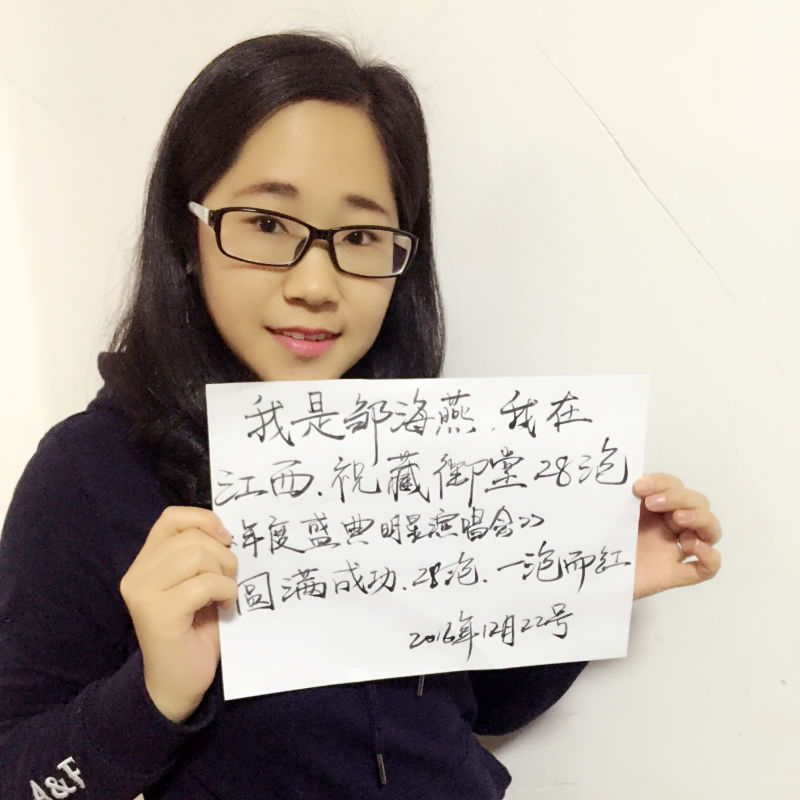 我是邹海燕.我在
江西、祝藏御堂28泡
《年度盛典明星演唱会》
圆满成功.28泡.一泡而红
2016年12月22号
A&F